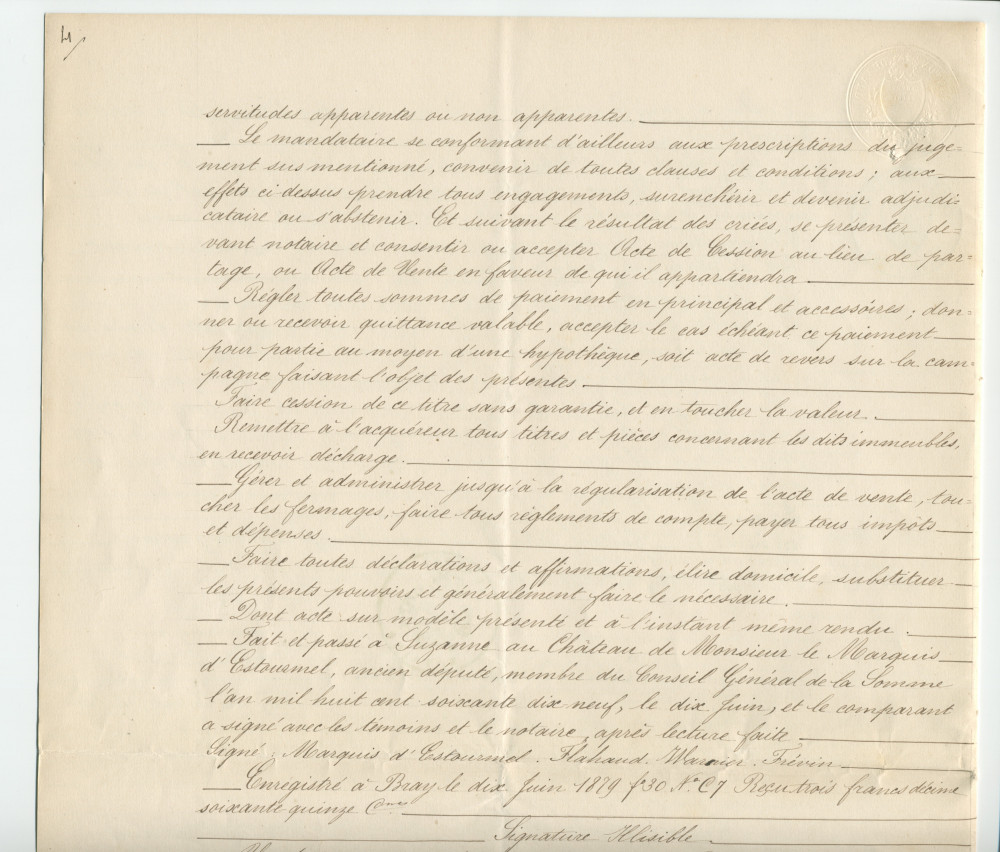 4/
servitudes apparentes ou non apparentes.
Le mandataire se conformant d'ailleurs aux prescriptions du juge=
ment sus mentionné, convenir de toutes clauses et conditions ; aux
effets ci-dessus prendre tous engagements, surenchérir et devenir adjudi=
cataire ou s'abstenir. Et suivant le résultat des criées, se présenter de=
vant notaire et consentir ou accepter Acte de Cession au lieu de par=
tage, ou Acte de Vente en faveur de qui il appartiendra
Régler toutes sommes de paiement en principal et accessoires ; don=
ner ou recevoir quittance valable, accepter le cas échéant ce paiement
pour partie au moyen d'une hypothèque, soit acte de revers sur la cam=
pagne faisant l'objet des présentes
Faire cession de ce titre sans garantie, et en toucher la valeur.
Remettre à l'acquéreur tous titres et pièces concernant les dits immeubles,
en recevoir décharge.
Gérer et administrer jusqu'à la régularisation de l'acte de vente, tou=
cher les fermages, faire tous règlements de compte, payer tous impôts
et dépenses.
Faire toutes déclarations et affirmations, élire domicile, substituer
les présents pouvoirs et généralement faire le nécessaire.
Dont acte sur modèle présenté et à l'instant même rendu.
Fait et passé à Suzanne au Château de Monsieur le Marquis
d'Estourmel, ancien député, membre du Conseil Général de la Somme
l'an mil huit cent soixante dix neuf, le dix Juin, et le comparant
a signé avec les témoins et le notaire, après lecture faite
Signé : Marquis d'Estourmel. Flahaud. Warnier. Frévin
Enregistré à Bray le dix Juin 1879 f°30. N° C7 Reçu trois francs décime
soixante quinze Cmes
Signature Illisible.